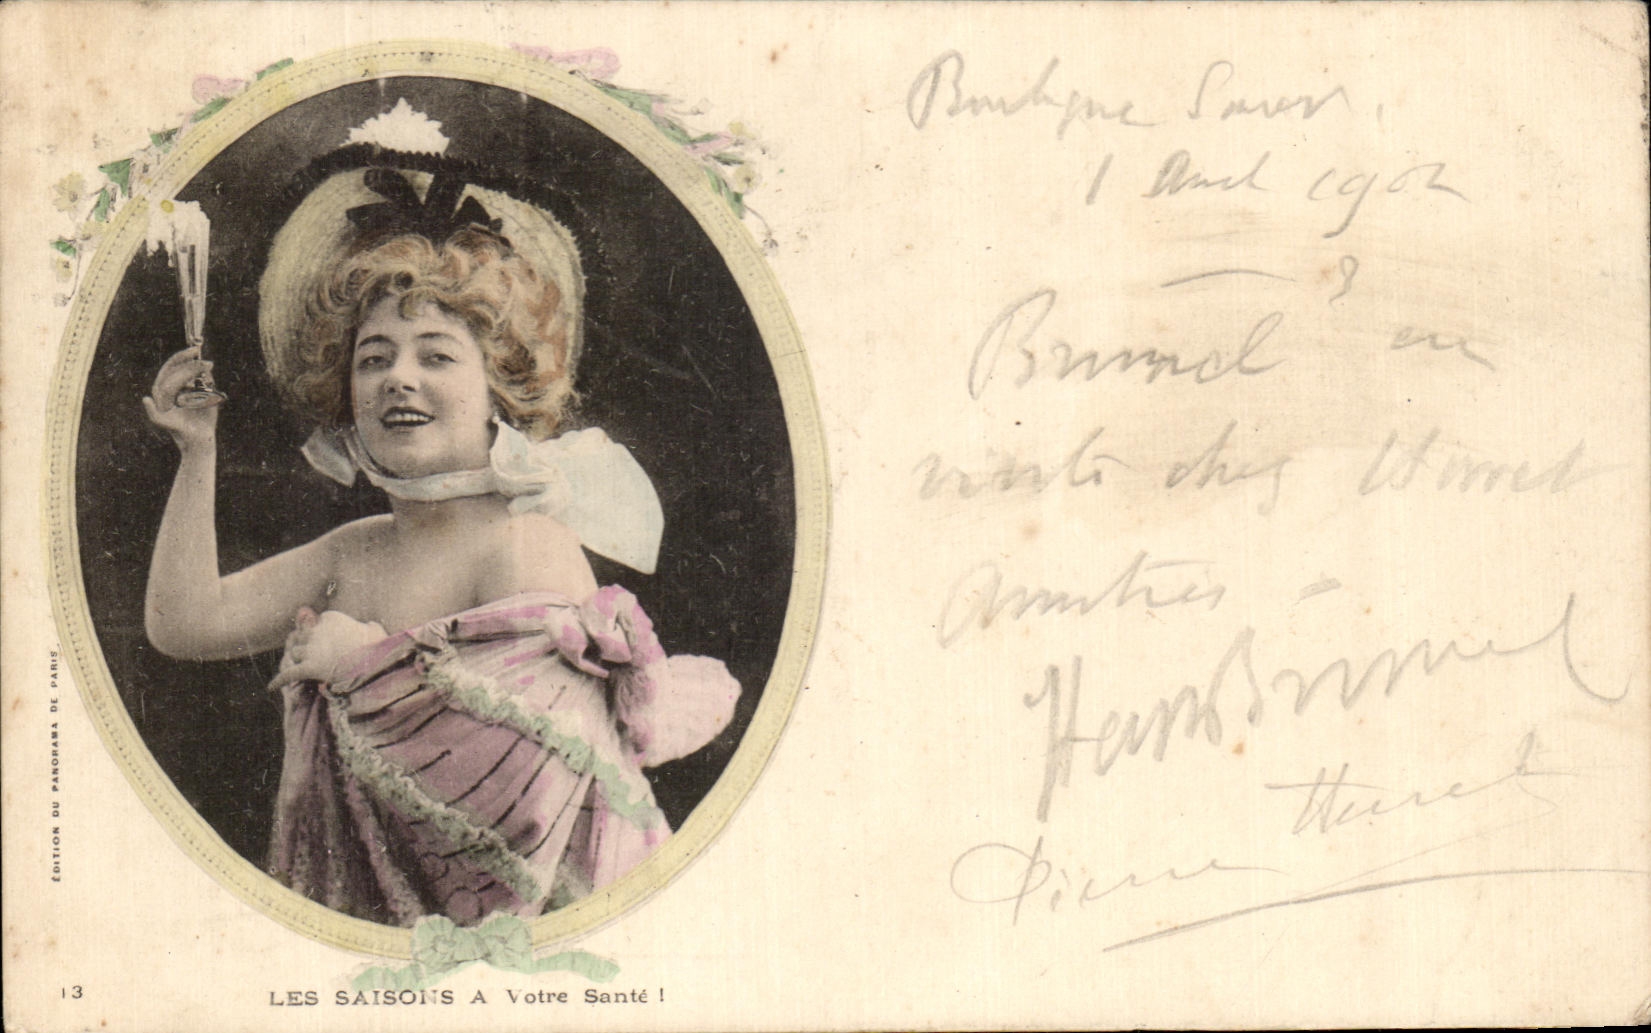 1 Avril 1902
Brunel en
visite chez Hurret
Amitiés -
Brunel
Pierre Hurret
ÉDITION DU PANORAMA DE PARIS
13
LES SAISONS A Votre Santé !